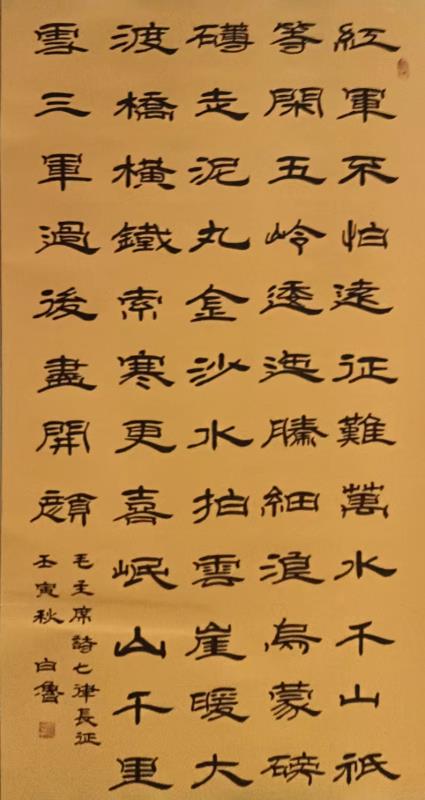 紅軍不怕遠征難萬水千山祇
等閑五岭逶迤騰細浪烏蒙磅
礴走泥丸金沙水拍雲崖暖大
渡橋橫鐵索寒更喜岷山千里
雪三軍過後盡開顏
毛主席詩七律長征
壬寅秋 白魯